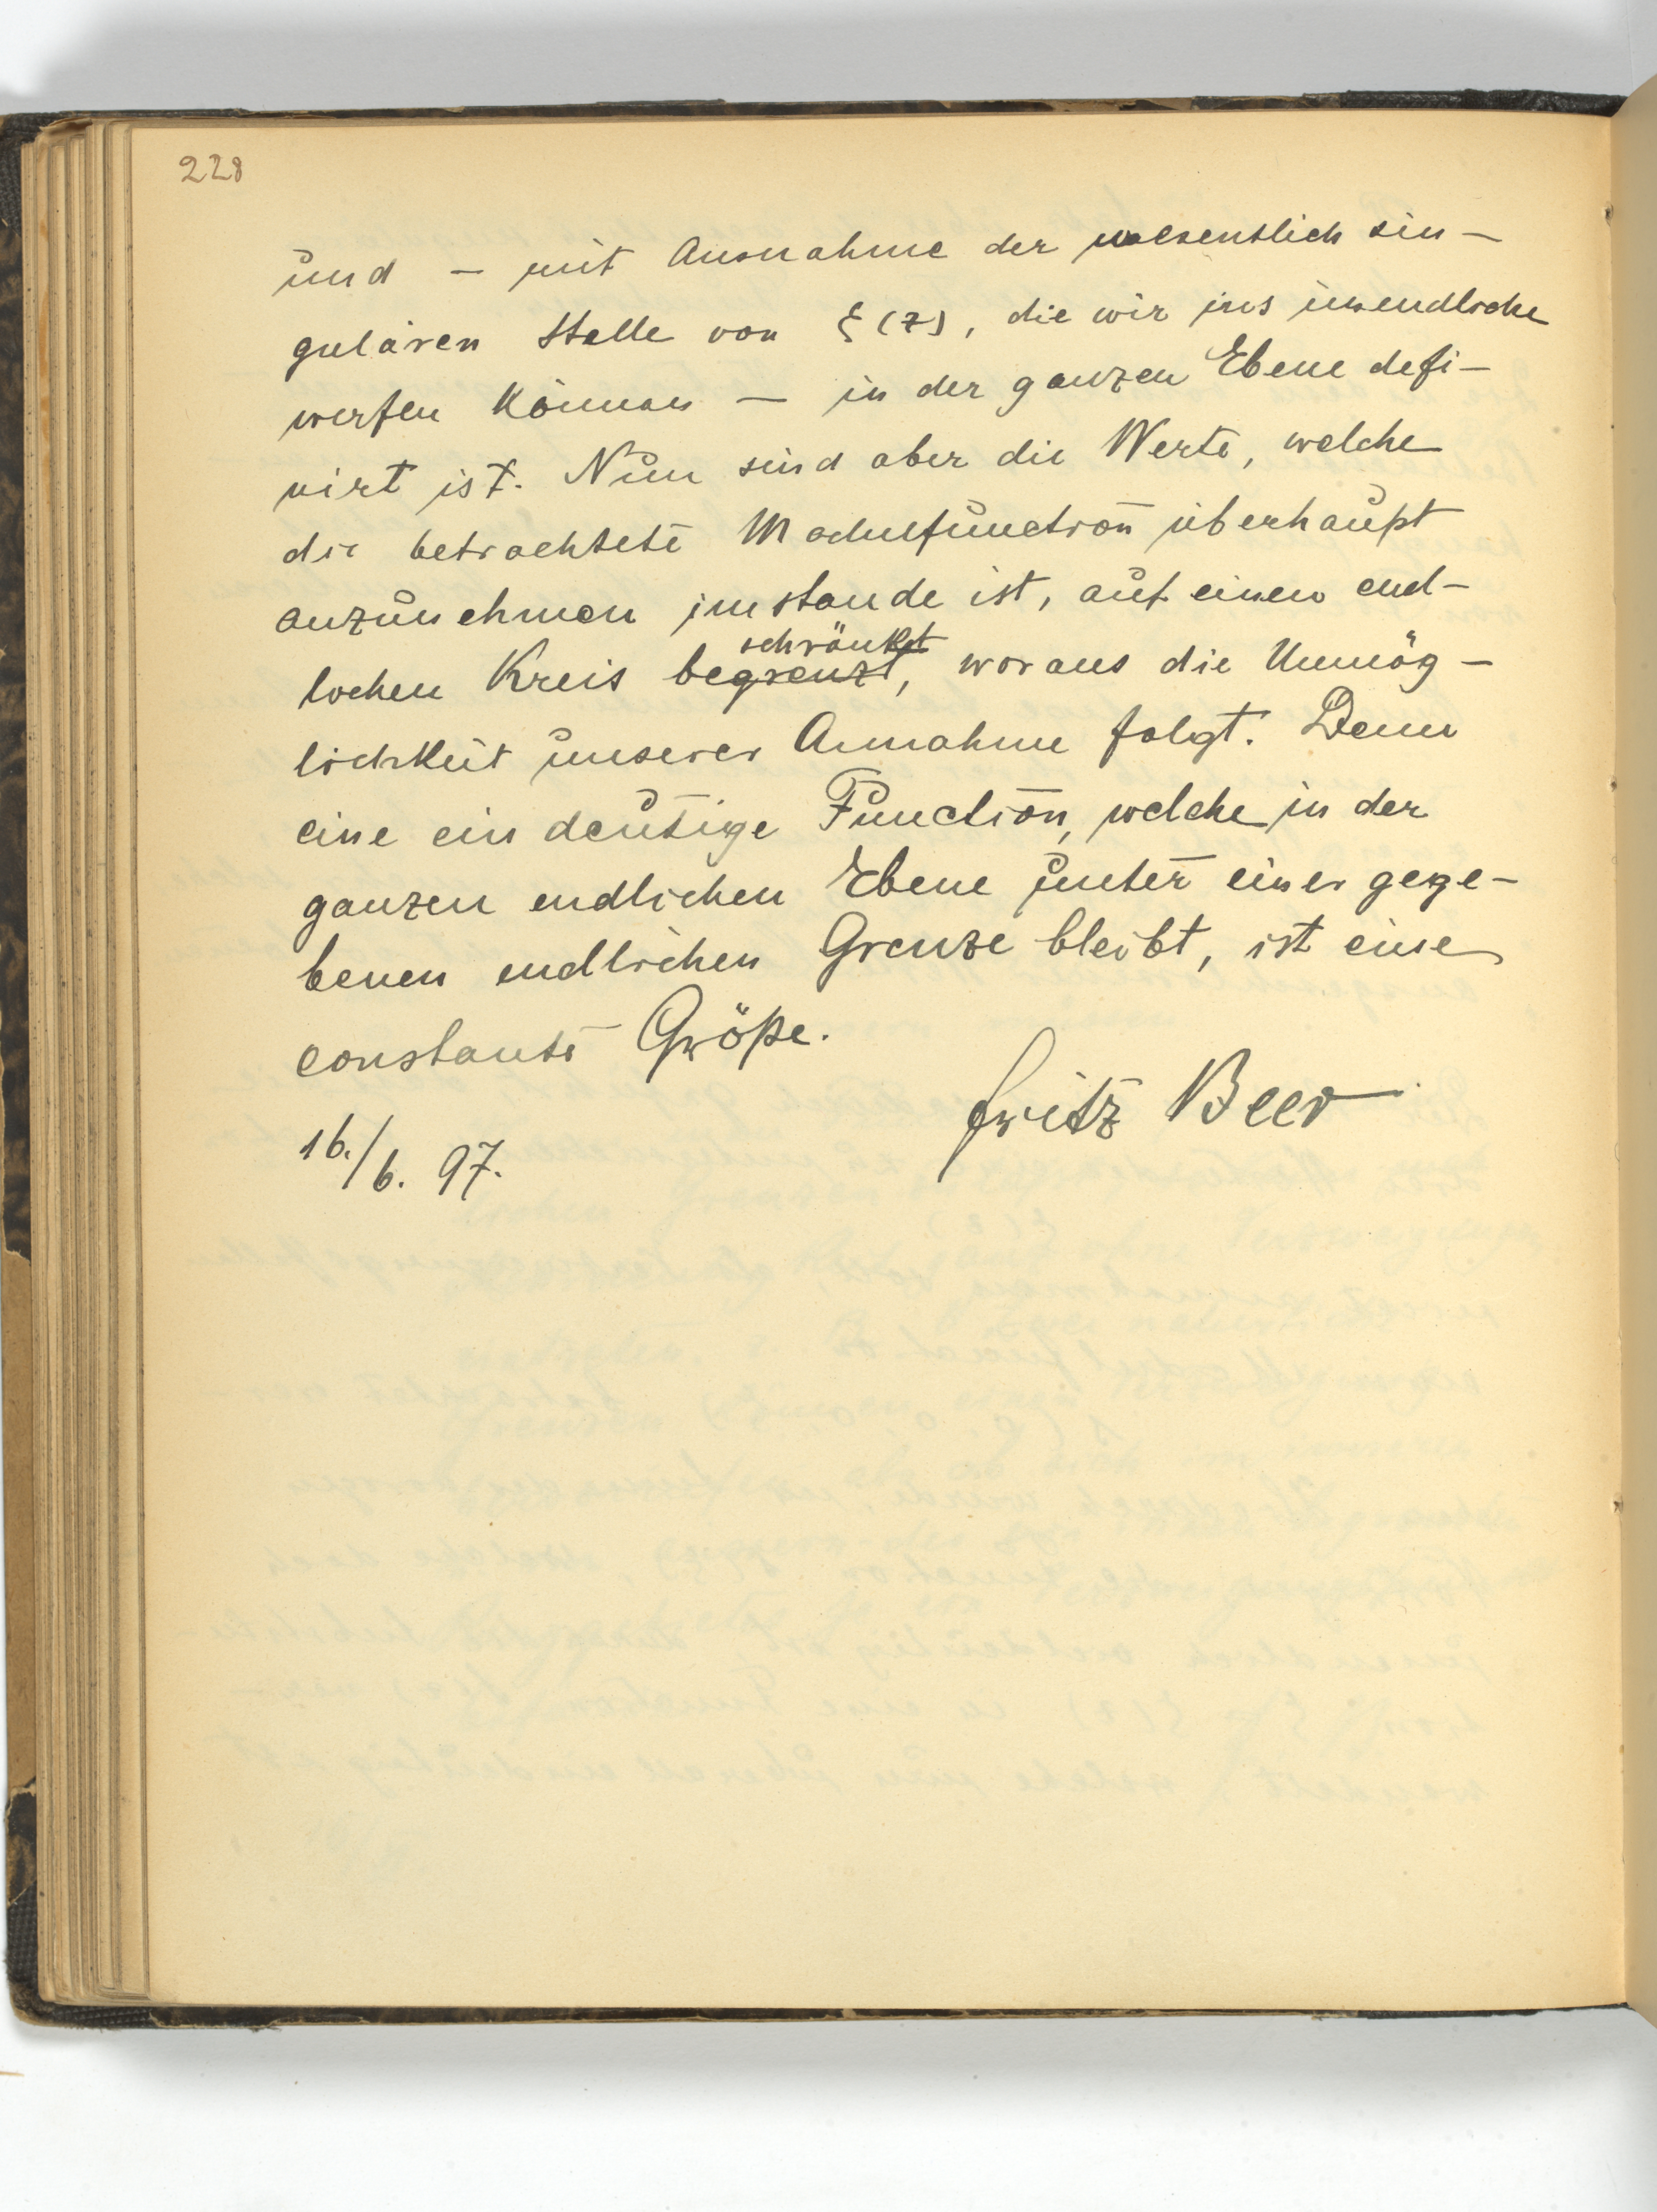 228
und – mit Ausnahme der wesentlich sin-
gulären Stelle von ξ(z), die wir ins unendliche
werfen können – in der ganzen Ebene defi-
nirt ist. Nun sind aber die Werte, welche
die betrachtete Modulfunction überhaupt
anzunehmen imstande ist, auf einen end-
schränkt
lichen Kreis begrenzt, woraus die Unmög-
lichkeit unserer Annahme folgt. Denn
eine eindeutige Function, welche in der
ganzen endlichen Ebene unter einer gege-
benen endlichen Grenze bleibt, ist eine
constante Größe.
Fritz Beer
16./6. 97.